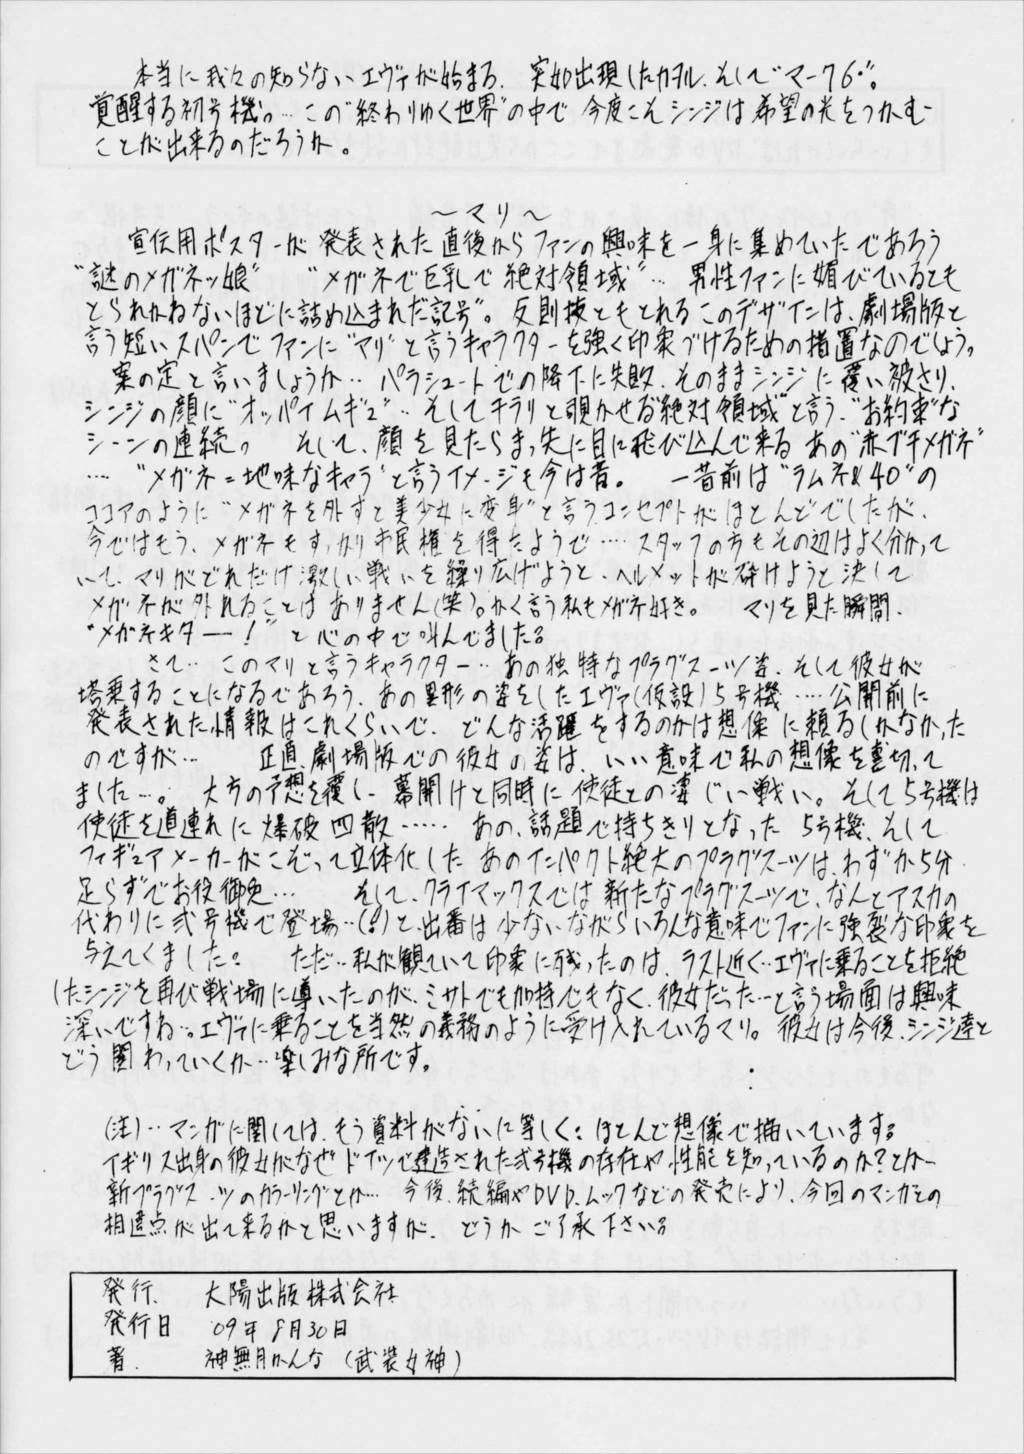 本当に我々の知らないエヴァが始まる、突如出現したカヲル、そして"マーク6"。
覚醒する初号機。… この"終わりゆく世界"の中で 今度こそシンジは希望の光をつかむ
ことが出来るのだろうか。
～マリ～
宣伝用ポスターが発表された直後からファンの興味を一身に集めていたであろう
"謎のメガネッ娘" "メガネで巨乳で絶対領域"… 男性ファンに媚びているとも
とられかねないほどに詰め込まれた記号"。反則技ともとれるこのデザインは、劇場版と
言う短いスパンでファンに"マリ"と言うキャラクターを強く印象づけるための措置なのでしょう。
案の定と言いましょうか… パラシュートでの降下に失敗、そのままシンジに覆い被さり、
シンジの顔に"オッパイムギュ"… そしてチラリと覗かせる"絶対領域"と言う、"お約束"な
シーンの連続。 そして、顔を見たらまっ先に目に飛び込んで来る あの"赤ブチメガネ"
… "メガネ=地味なキャラ"と言うイメージも今は昔。 一昔前は"ラムネ&40"の
ココアのように"メガネを外すと美少女に変身"と言うコンセプトがほとんどでしたが、
今ではもう、メガネもすっかり市民権を得たようで…. スタッフの方もその辺はよく分かって
いて、マリがどれだけ激しい戦いを繰り広げようと、ヘルメットが砕けようと決して
メガネが外れることはありません(笑)。かく言う私もメガネ好き。 マリを見た瞬間、
"メガネキター!"と心の中で叫んでました。
さて… このマリと言うキャラクター… あの独特なプラグスーツ姿、そして彼女が
塔乗することになるであろう、あの異形の姿をしたエヴァ(仮設)5号機…. 公開前に
発表された情報はこれくらいで、どんな活躍をするのかは想像に頼るしかなかった
のですが… 正直、劇場版での彼女の姿は、いい意味で私の想像を裏切って
ました…。 大方の予想を覆し、幕開けと同時に使徒との凄じい戦い。そして5号機は
使徒を道連れに爆破四散…… あの、話題で持ちきりとなった5号機、そして
フィギュアメーカーがこぞって立体化したあのインパクト絶大のプラグスーツは、わずか5分
足らずでお役御免… そして、クライマックスでは新たなプラグスーツで、なんとアスカの
代わりに弐号機で登場…(!)と、出番は少ないながらいろんな意味でファンに強裂な印象を
与えてくました。 ただ…私が観ていて印象に残ったのは、ラスト近く…エヴァに乗ることを拒絶
したシンジを再び戦場に導いたのが、ミサトでも加持でもなく、彼女だった…と言う場面は興味
深いですね…。エヴァに乗ることを当然の義務のように受け入れているマリ。彼女は今後、シンジ達と
どう関わっていくか…楽しみな所です。
(注)… マンガに関しては、もう資料がないに等しく、ほとんど想像で描いています。
イギリス出身の彼女がなぜドイツで建造された弐号機の存在や、性能を知っているのか?とか…
新プラグスーツのカラーリングとか… 今後、続編やDVD、ムックなどの発売により、今回のマンガとの
相違点が出て来るかと思いますが、どうかご了承下さい。
発行、 大陽出版株式会社
発行日 '09年8月30日
著. 神無月かんな (武装女神)